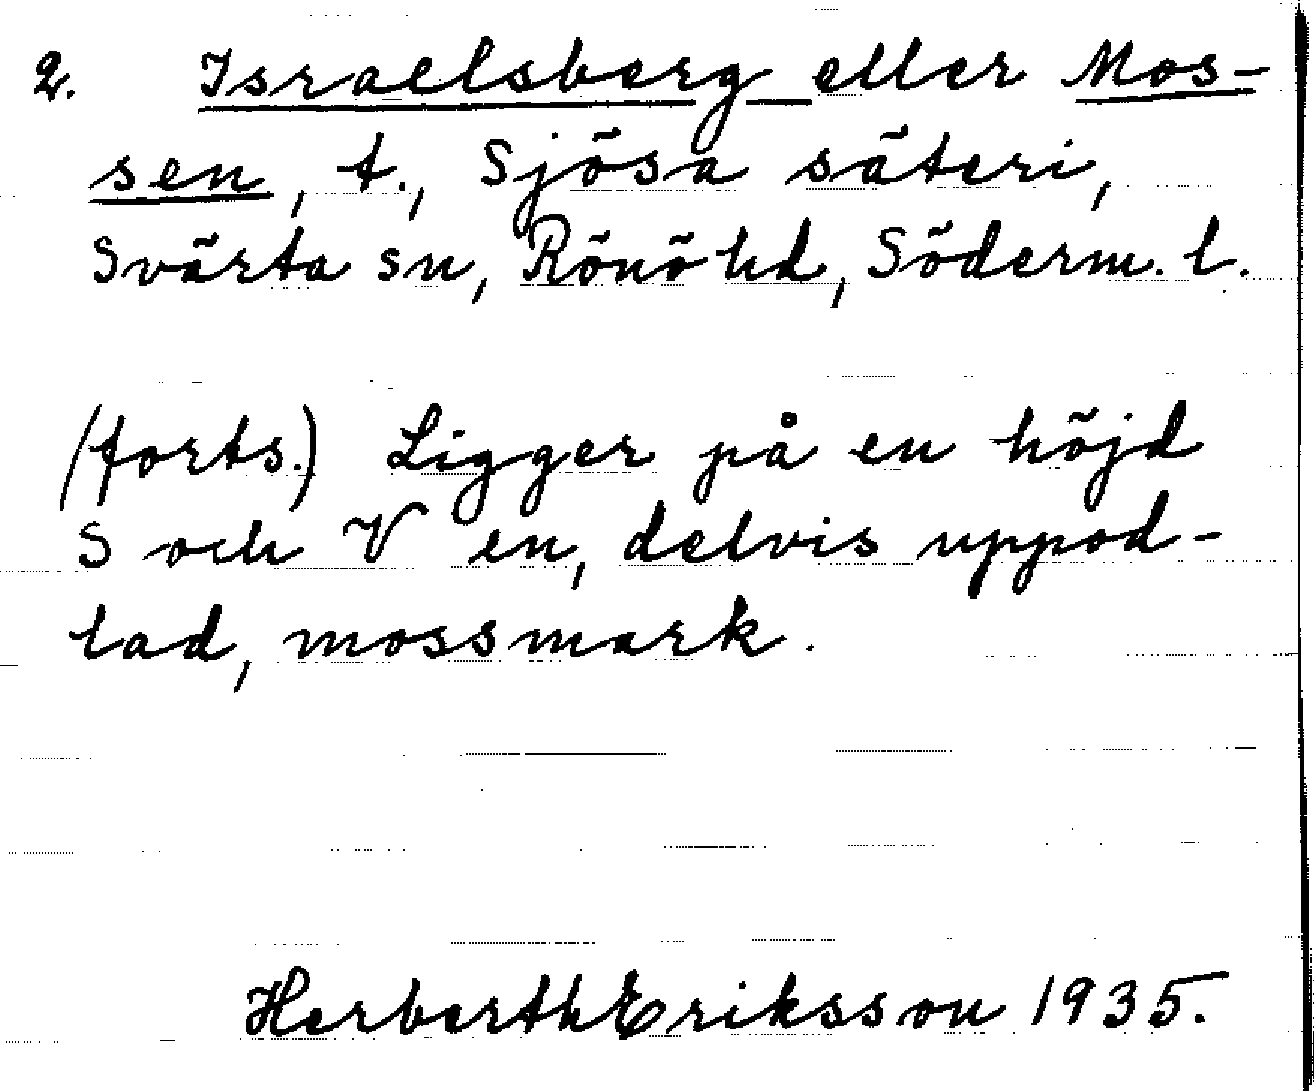 2. Israelsberg eller Mos-
sen, t., Sjösa säteri,
Svärta sn, Rönö hd, Söderm. l.
(forts.) Ligger på en höjd
S och V en, delvis uppod-
lad, mossmark.
Herberth Eriksson 1935.